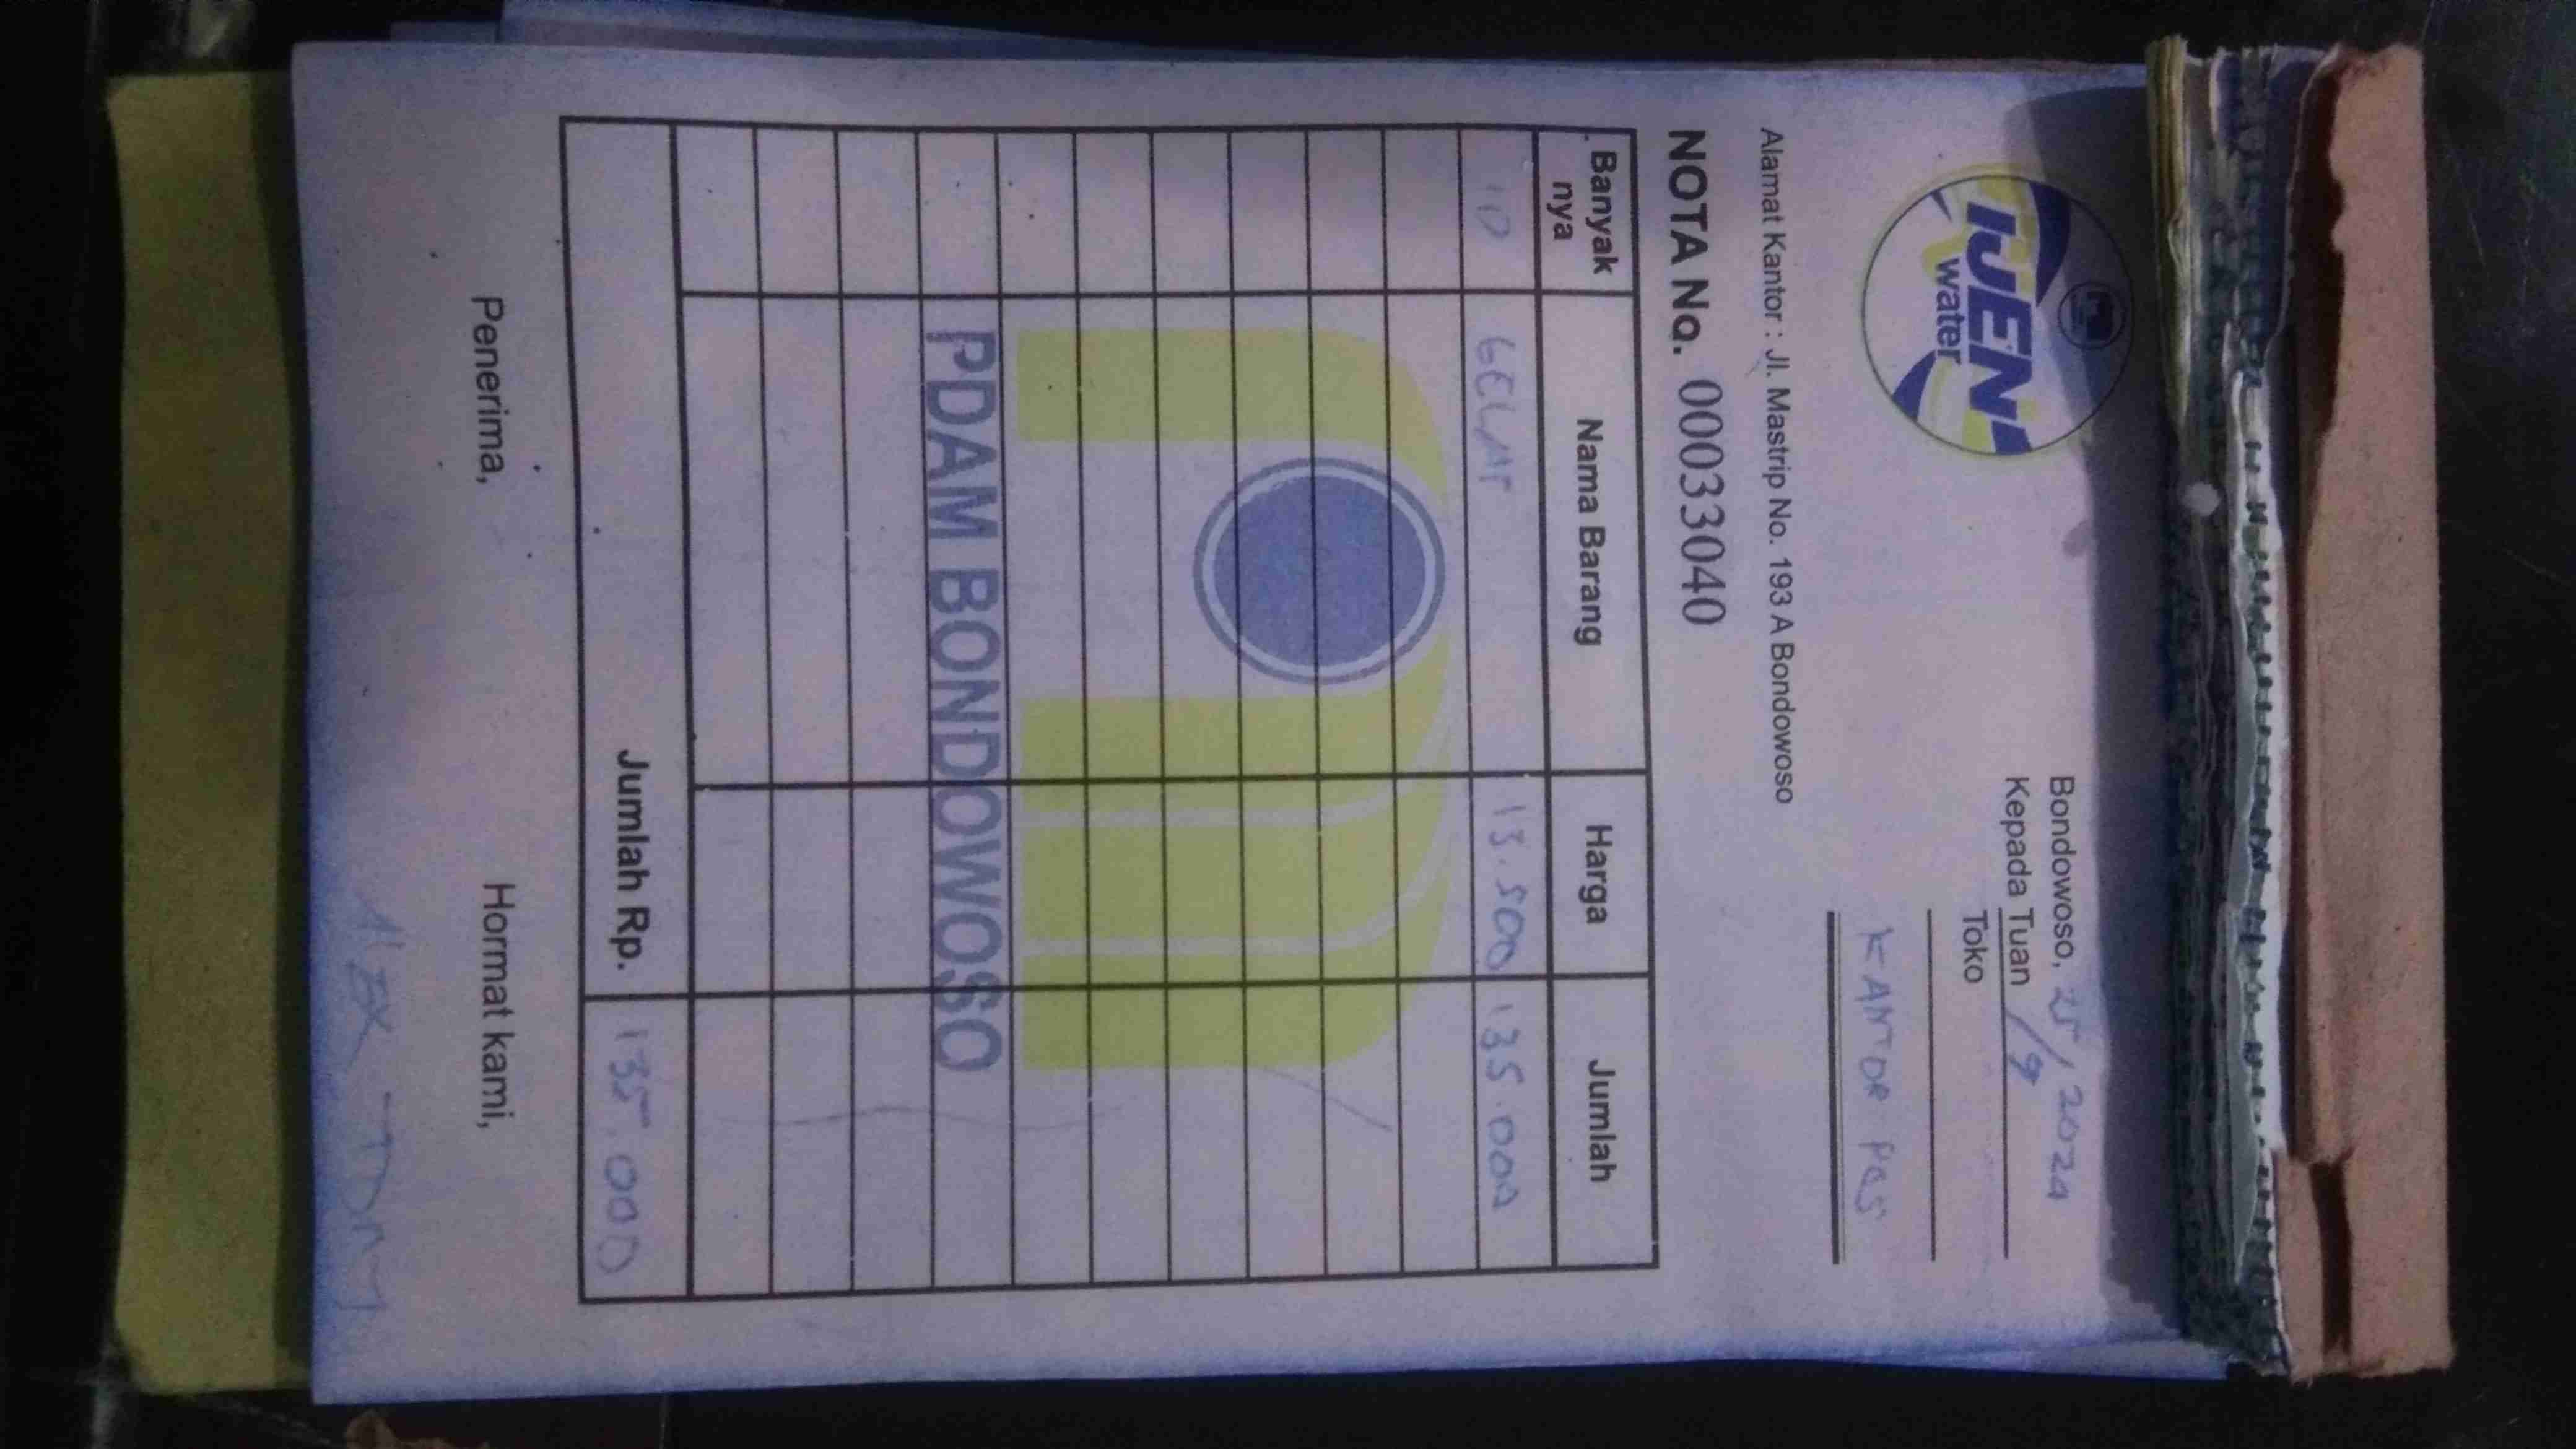 IJEN
water
Bondowoso, 25/9/2024
Kepada Tuan
Toko
KANTOR POS
Alamat Kantor : Jl. Mastrip No. 193 A Bondowoso
NOTA No. 00033040
Banyak nya Nama Barang Harga Jumlah
10 GELAS 13.500 135.000
PDAM BONDOWOSO
Jumlah Rp. 135.000
Penerima, Hormat kami,